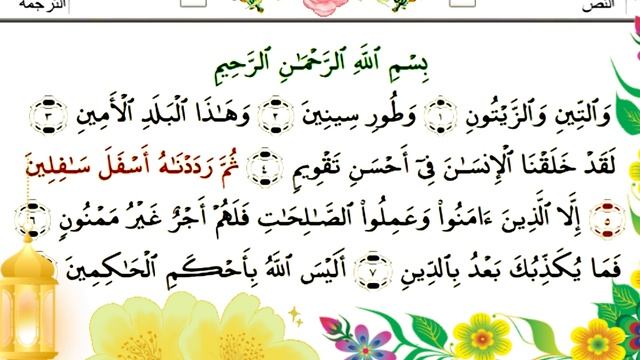 النص
الترجمة
بِسْمِ ٱللَّهِ ٱلرَّحْمَـٰنِ ٱلرَّحِيمِ
وَٱلتِّينِ وَٱلزَّيْتُونِ ١ وَطُورِ سِينِينَ ٢ وَهَـٰذَا ٱلْبَلَدِ ٱلْأَمِينِ ٣
لَقَدْ خَلَقْنَا ٱلْإِنسَـٰنَ فِىٓ أَحْسَنِ تَقْوِيمٍ ٤ ثُمَّ رَدَدْنَـٰهُ أَسْفَلَ سَـٰفِلِينَ
٥ إِلَّا ٱلَّذِينَ ءَامَنُوا۟ وَعَمِلُوا۟ ٱلصَّـٰلِحَـٰتِ فَلَهُمْ أَجْرٌ غَيْرُ مَمْنُونٍ ٦
فَمَا يُكَذِّبُكَ بَعْدُ بِٱلدِّينِ ٧ أَلَيْسَ ٱللَّهُ بِأَحْكَمِ ٱلْحَـٰكِمِينَ